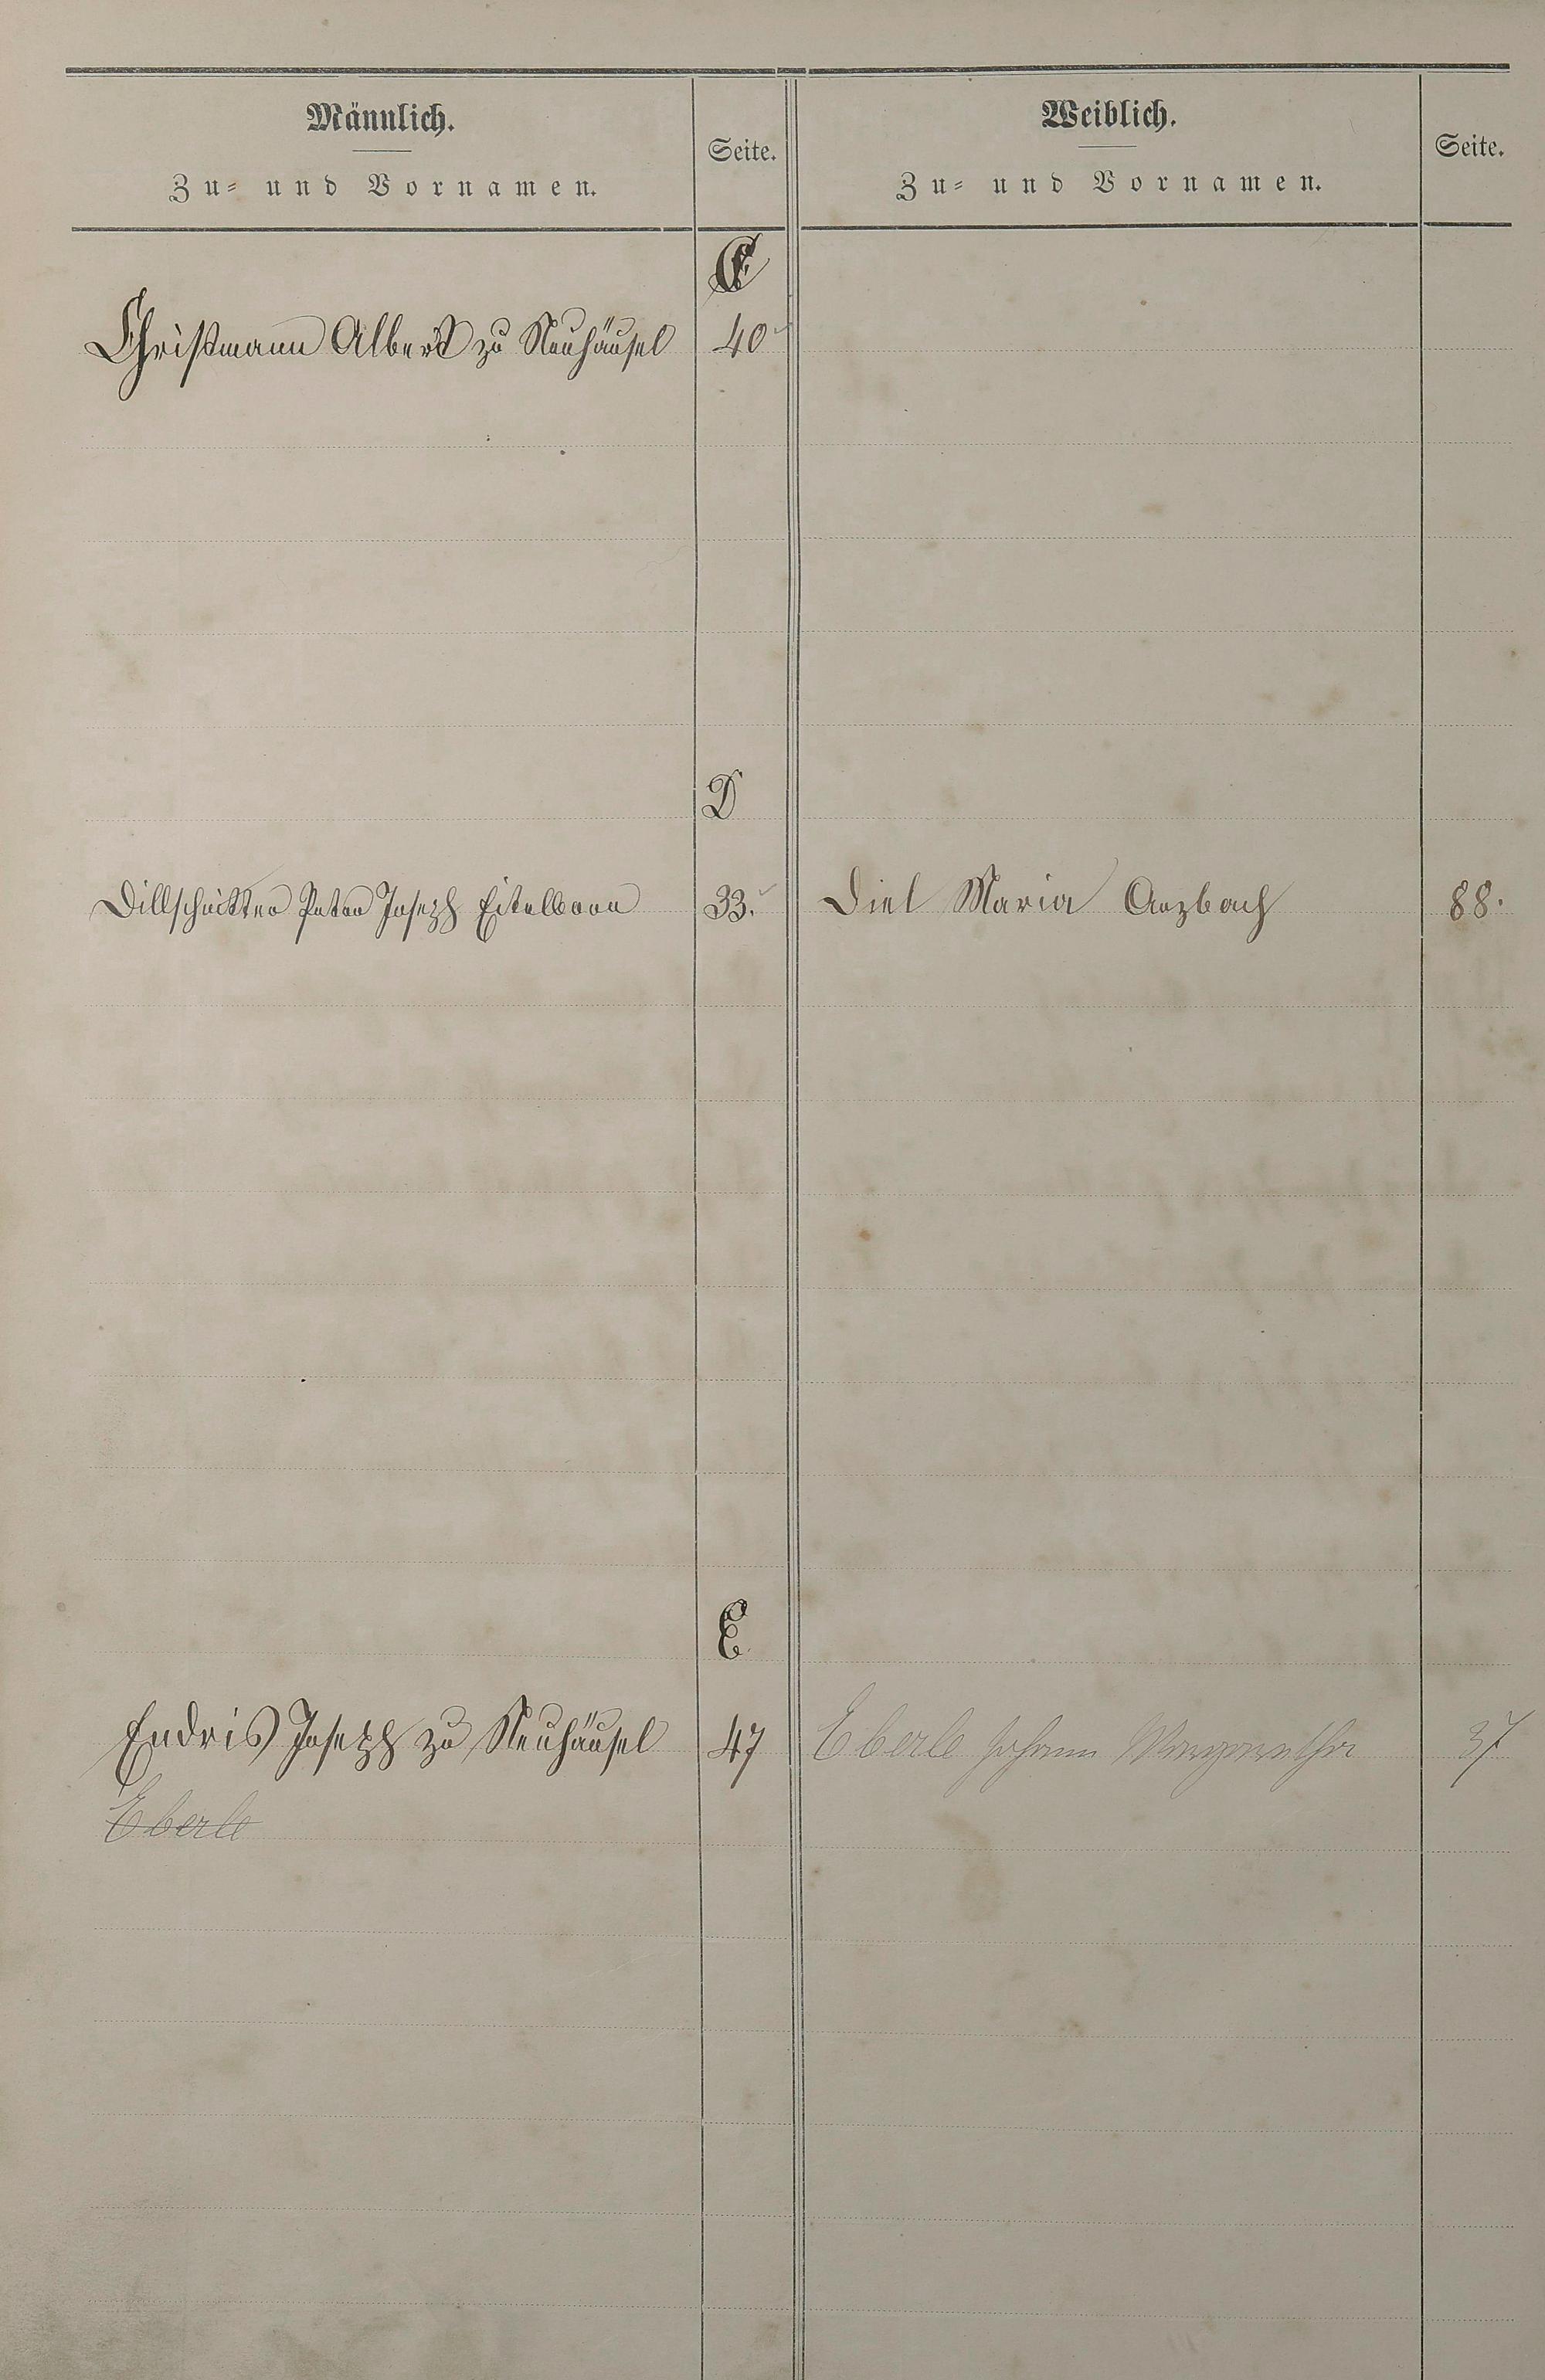 Männlich.
Zu- und Vornamen.
Seite.
Weiblich.
Zu- und Vornamen.
Seite.
C
Christmann Albert zu Neuhäusel 40
D
Dillschnitter Peter Joseph Eitelborn 33.
Diel Maria Arzbach 88.
E
Endris Joseph zu Neuhäusel 47
Eberle Johann Margaretha 37
Eberle